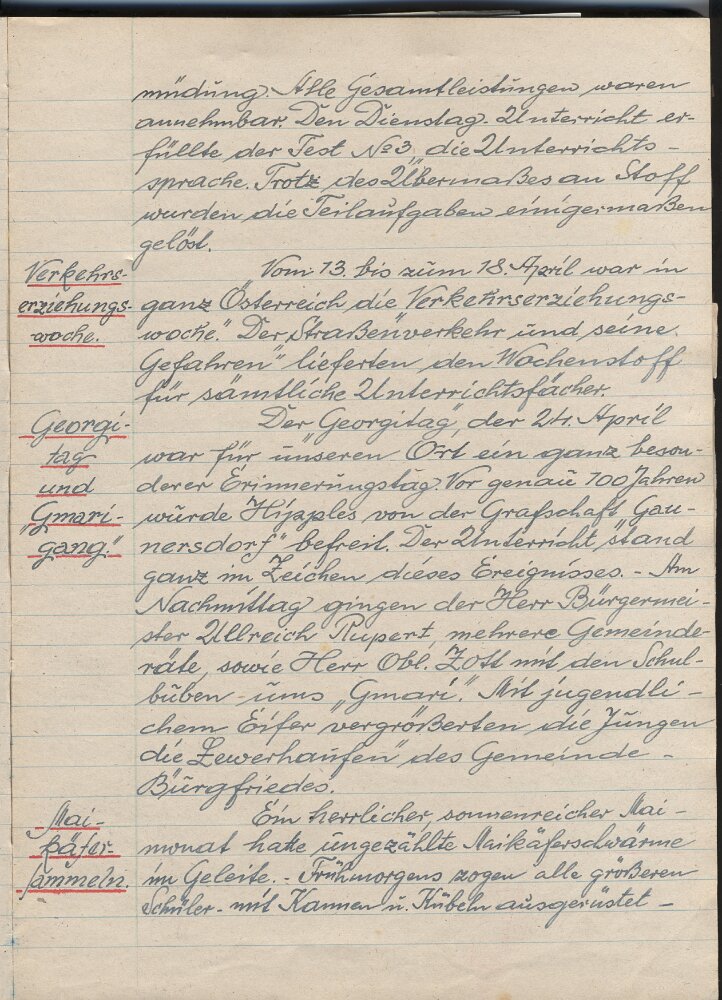 müdung. Alle Gesamtleistungen waren
annehmbar. Den Dienstag-Unterricht er-
füllte der Test №3, die Unterrichts-
sprache. Trotz des Übermaßes an Stoff
wurden die Teilaufgaben einigermaßen
gelöst.
Verkehrs-
erziehungs-
woche.
Vom 13. bis zum 18. April war in
ganz Österreich die "Verkehrserziehungs-
woche." Der "Straßenverkehr und seine
Gefahren" lieferten den Wochenstoff
für sämtliche Unterrichtsfächer.
Georgi-
tag
und
"Gmari-
gang."
Der Georgitag, der 24. April
war für unseren Ort ein ganz beson-
derer Erinnerungstag. Vor genau 100 Jahren
wurde Hipples von der Grafschaft "Gau-
nersdorf" befreit. Der Unterricht stand
ganz im Zeichen dieses Ereignisses. - Am
Nachmittag gingen der Herr Bürgermei-
ster Ullreich Rupert, mehrere Gemeinde-
räte, sowie Herr Obl. Zott mit den Schul-
buben ums "Gmari." Mit jugendli-
chem Eifer vergrößerten die Jungen
die "Lewerhaufen" des Gemeinde-
Burgfriedes.
Mai-
käfer-
sammeln.
Ein herrlicher, sonnenreicher Mai-
monat hatte ungezählte Maikäferschwärme
im Geleite. - Frühmorgens zogen alle größeren
Schüler - mit Kannen u. Kübeln ausgerüstet -